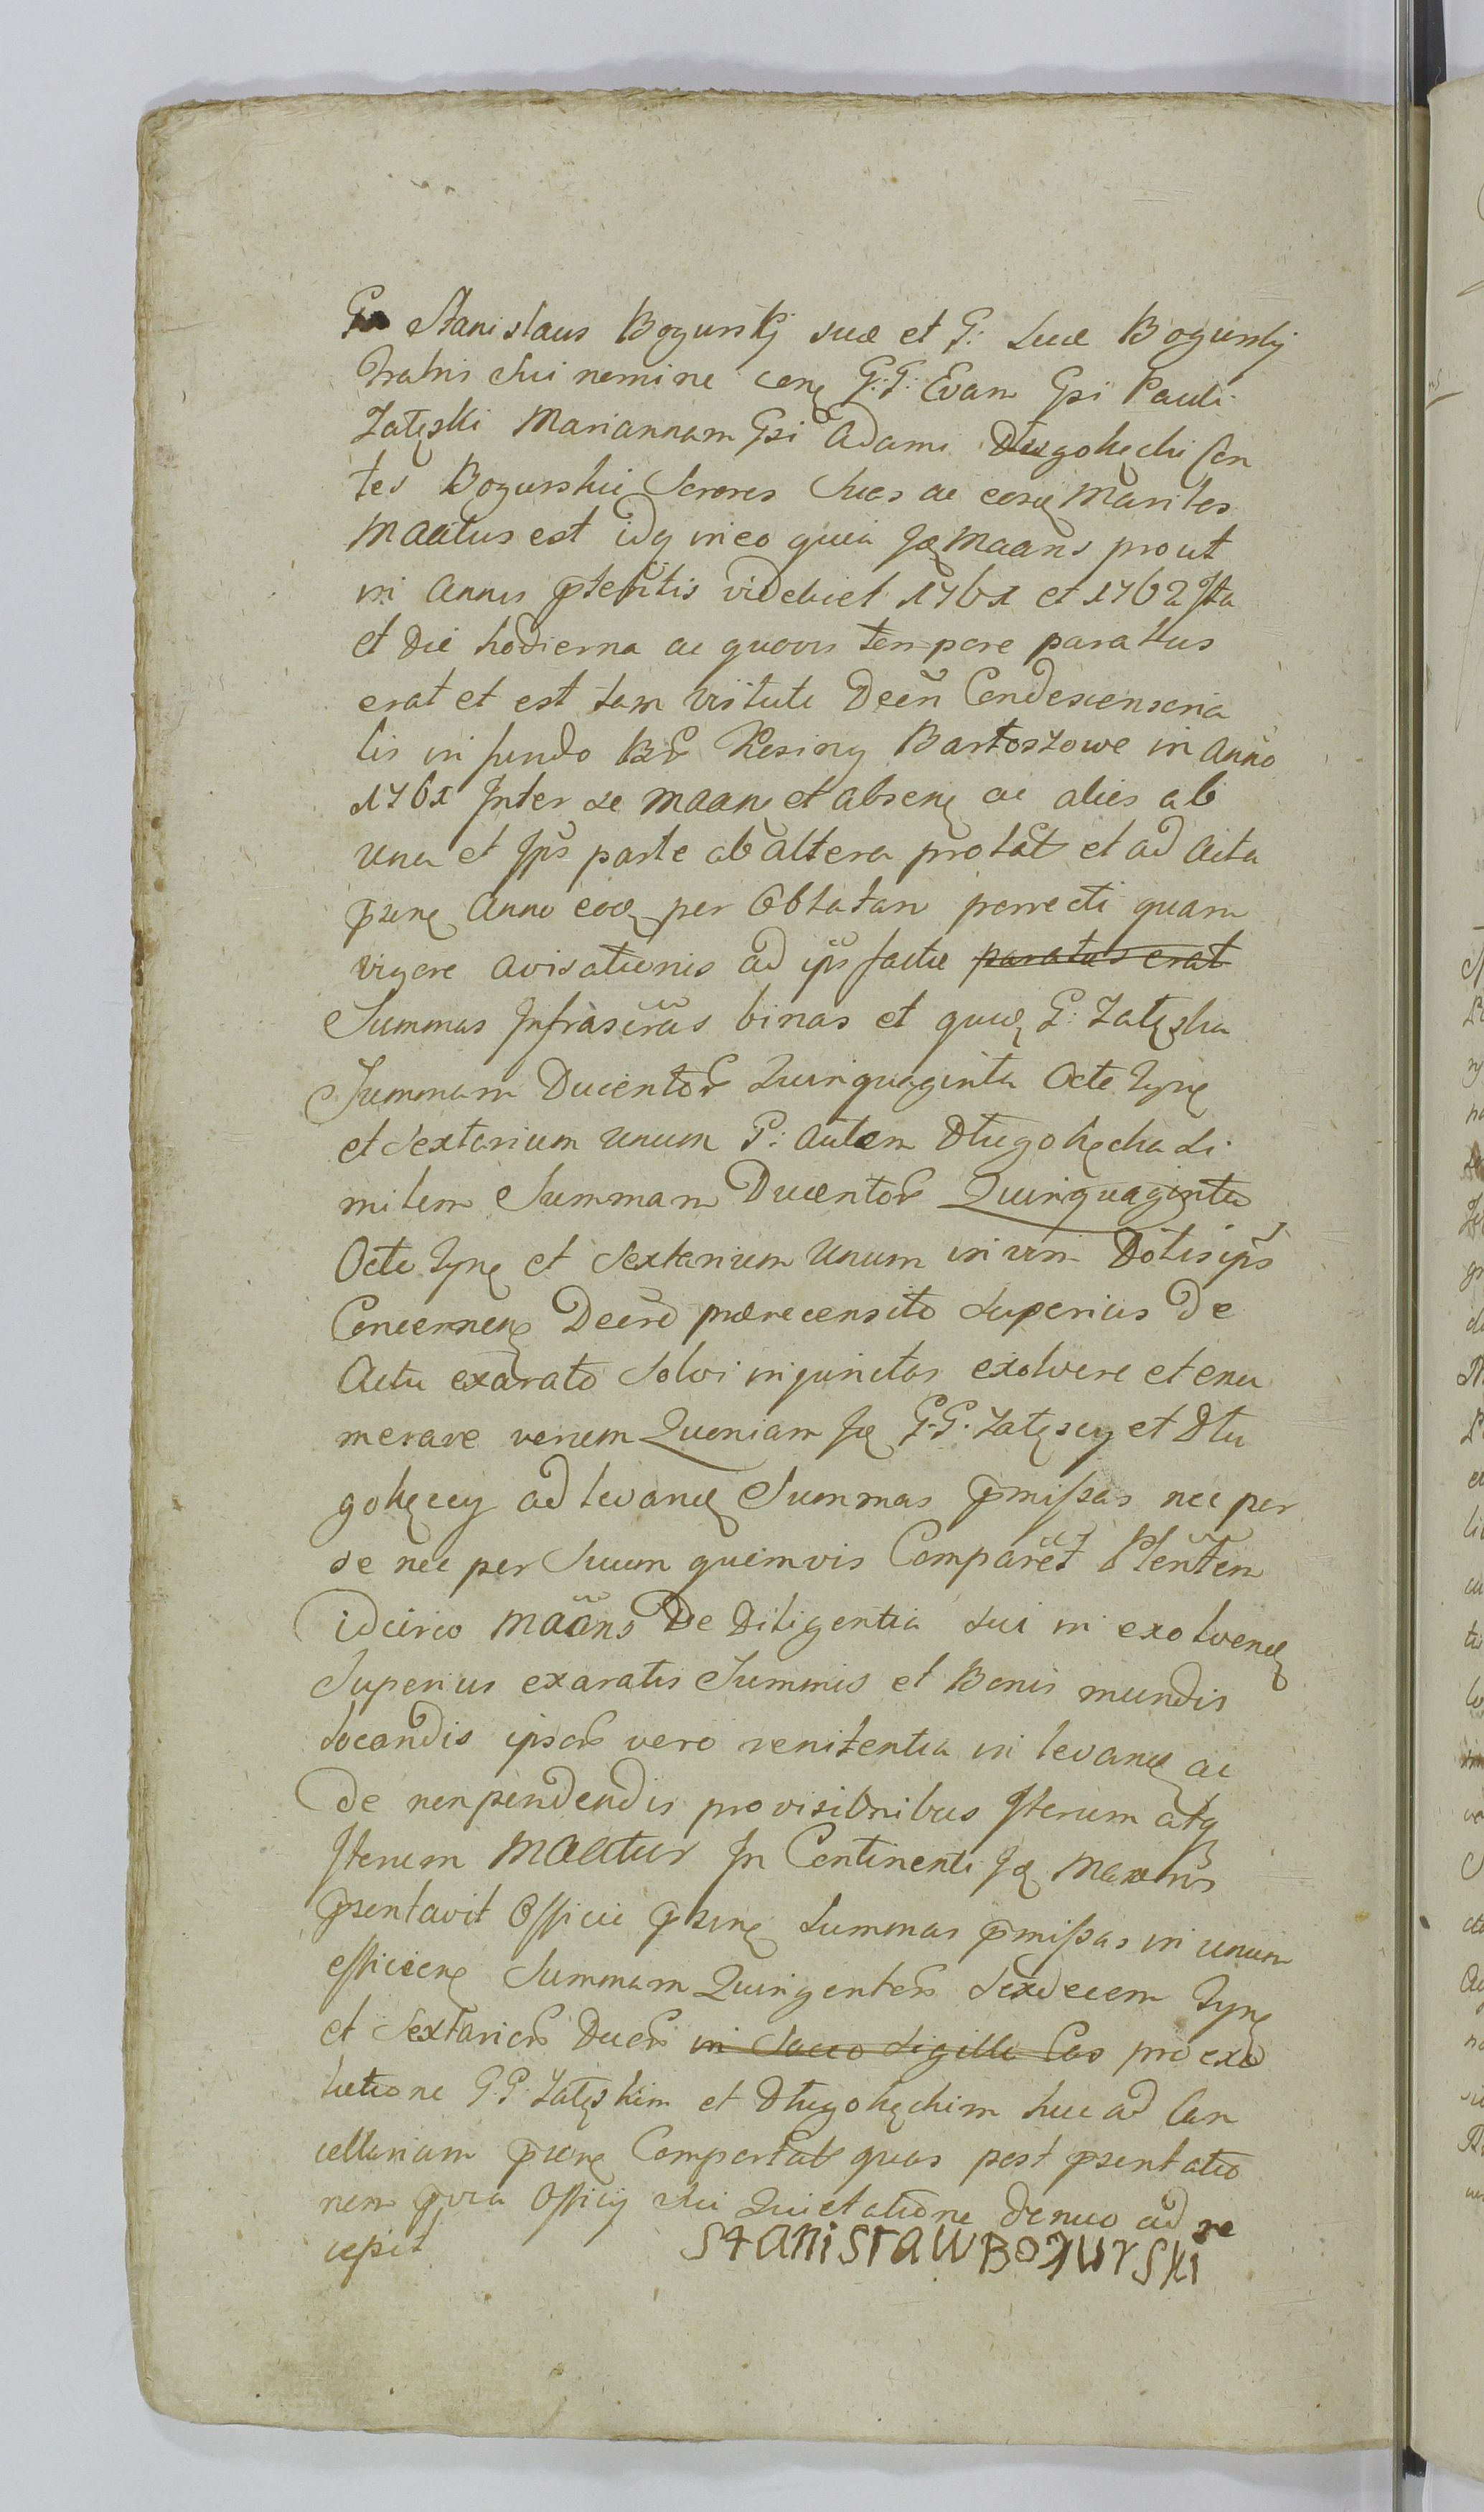 G Stanislaus Bogurskj suo et G: Lucæ Bogurskj
Fratris Sui nomine conq G:G: Evam Gsi Pauli
Załęski Mariannam Gsi Adami Długołęcki Con
tes Bogurskie Sorores Suas ac eorq Maritos
Maãtus est idq in eo quia Jq Maans prout
in Annis pteritis videlicet 1761 et 1762 Ita
et Die hodierna ac quovis tempore paratus
erat et est tam virtute Decri Condescensoria
lis in fundo Bor Kesiny Bartoszowe in Anno
1761 Inter se Maanq et absenq ac alios ab
una et Ips parte ab altera prolat et ad Acta
psenq Anno eodq per Oblatam porrecti quam
vigore avisationis ad ips factæ paratus erat
Summas Infrascras binas et quidq G: Załęska
Summam Ducentor Quinquaginta Octo Tynq
et Sextarium unum G: autem Długołęcka Si
milem Summam Ducentor Quinquaginta
Octo Tynq et Sextarium Unum in vim Dotis ips
Concernenq Decro prærecensito Superius De
Actu exarato Solvi injunctas exolvere et enu
merare verum Quoniam Jq G.G. Załęscy et Dłu
gołęccy ad levandq Summas pmissas nec per
se nec per Suum quemvis Comparet Plenten
idcirco Maans De Diligentia sui in exolvendq
Superius exaratis Summis et Bonis mundis
Locandis ipsor vero renitentia in levandq ac
De non pendendis provisionibus Iterum atq
Iterum Maatur In Continenti Jq Maans
psentavit Officio psenq Summas pmissas in unum
efficienq Summam Quingentor Sexdecem Tynq
et Sextarior Duor in Sacco Sigillo Eas pro exo
lutione G.G. Załęskim et Długołęckim huc ad Can
cellariam psenq Comportat quas post psentatio
nem pvia Officij sui Quietatione Denuo ad re
cepit
Stanisław Bogurski